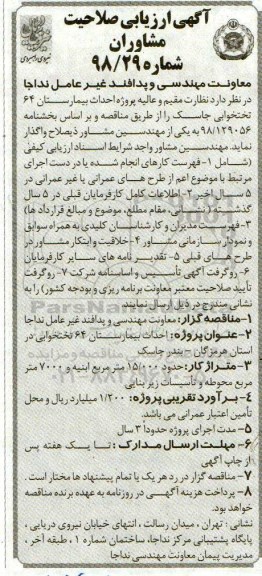 آگهی ارزیابی صلاحیت
مشاوران
شماره ۹۸/۲۹
معاونت مهندسی و پدافند غیر عامل نداجا
در نظر دارد نظارت مقیم و عالیه پروژه احداث بیمارستان ۶۴
تختخوابی جاسک را از طریق مناقصه و بر اساس بخشنامه
۹۸/۱۲۹۰۵۶ به یکی از مهندسین مشاور ذیصلاح واگذار
نماید. مهندسین مشاور واجد شرایط اسناد ارزیابی کیفی
(شامل ۱- فهرست کارهای انجام شده یا در دست اجرای
مرتبط با موضوع اعم از طرح های عمرانی یا غیر عمرانی در
۵ سال اخیر ۲- اطلاعات کامل کارفرمایان قبلی در ۵ سال
گذشته (نشانی، مقام مطلع، موضوع و مبالغ قرارداد ها)
۳- فهرست مدیران و کارشناسان کلیدی به همراه سوابق
و نمودار سازمانی مشاور ۴- خلاقیت و ابتکار مشاور در
طرح های قبلی ۵- تقدیر نامه های سایر کارفرمایان
۶- روگرفت آگهی تأسیس و اساسنامه شرکت ۷- روگرفت
تأیید صلاحیت معتبر معاونت برنامه ریزی و بودجه کشور) را به
نشانی مندرج در ذیل ارسال نمایند.
۱- مناقصه گزار: معاونت مهندسی و پدافند غیر عامل نداجا
۲- عنوان پروژه: احداث بیمارستان ۶۴ تختخوابی در
استان هرمزگان - بندر جاسک
۳- متراژ کار: حدود ۱۵۰۰۰ متر مربع ابنیه و ۷۰۰۰ متر
مربع محوطه و تأسیسات زیر بنایی
۴- برآورد تقریبی پروژه: ۱/۲۰۰ میلیارد ریال و محل
تأمین اعتبار عمرانی می باشد.
۵- مدت اجرای پروژه حدوداً ۳ سال
۶- مهلت ارسال مدارک: تا یک هفته پس
از چاپ آگهی
۷- مناقصه گزار در رد هر یک یا تمام پیشنهاد ها مختار است.
۸- پرداخت هزینه آگهی در روزنامه به عهده برنده مناقصه
خواهد بود.
نشانی: تهران، میدان رسالت، انتهای خیابان نیروی دریایی،
پایگاه پشتیبانی مرکز نداجا، ساختمان شماره ۱، طبقه آخر،
مدیریت پیمان معاونت مهندسی نداجا